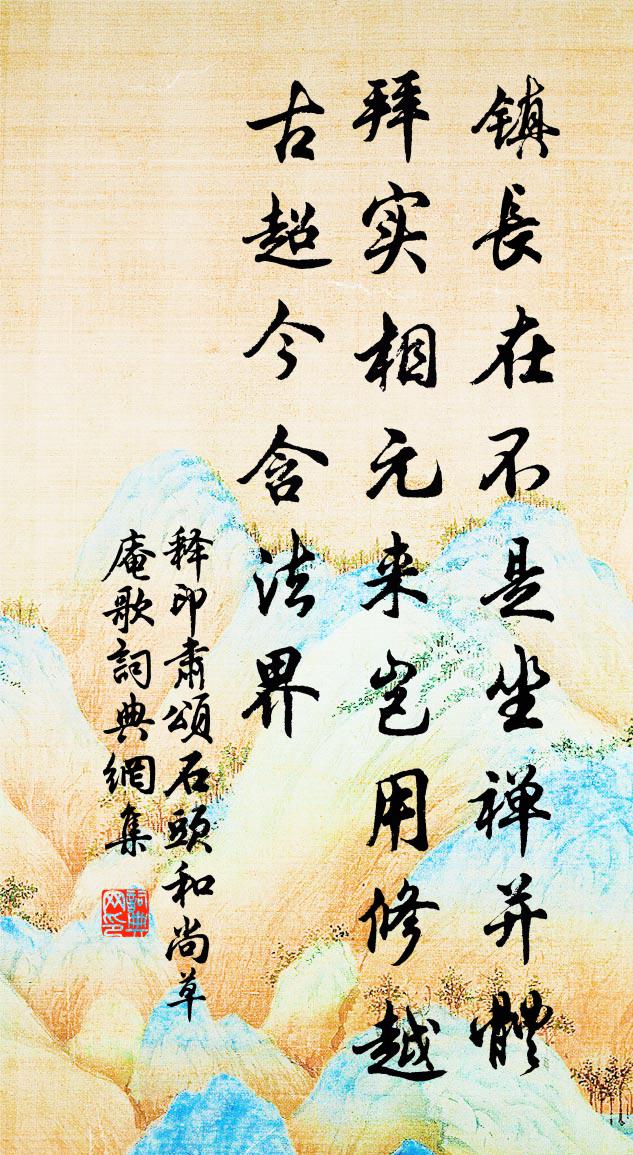 镇長在不是坐禅并體
拜实相元来岂用修越
古超今含法界
释印肃頌石頭和尚草
庵歌詞典網集
詞典
网印